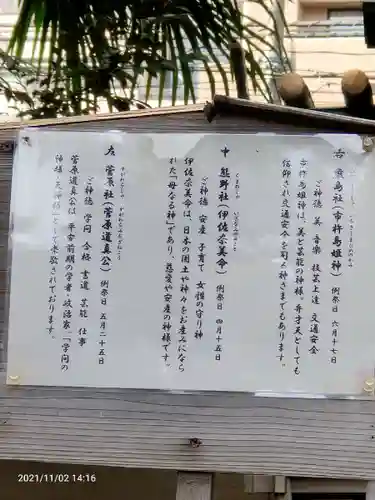 右 厳島社(市杵島姫神) 例祭日 六月十七日
ご神徳 美 音楽 技芸上達 交通安全
市杵島姫神は、美と芸能の神様。弁才天としても
信仰され交通安全を司る神さまでもあります。
中 熊野社(伊佐奈美命) 例祭日 四月十五日
ご神徳 安産 子育て 女性の守り神
伊佐奈美命は、日本の国土や神々をお産みになら
れた「母なる神」であり、慈愛や安産の神様です。
左 菅原社(菅原道真公) 例祭日 五月二十五日
ご神徳 学問 合格 書道 芸能 仕事
菅原道真公は、平安前期の学者・政治家。「学問の
神様・天神様」として崇敬されております。
2021/11/02 14:16